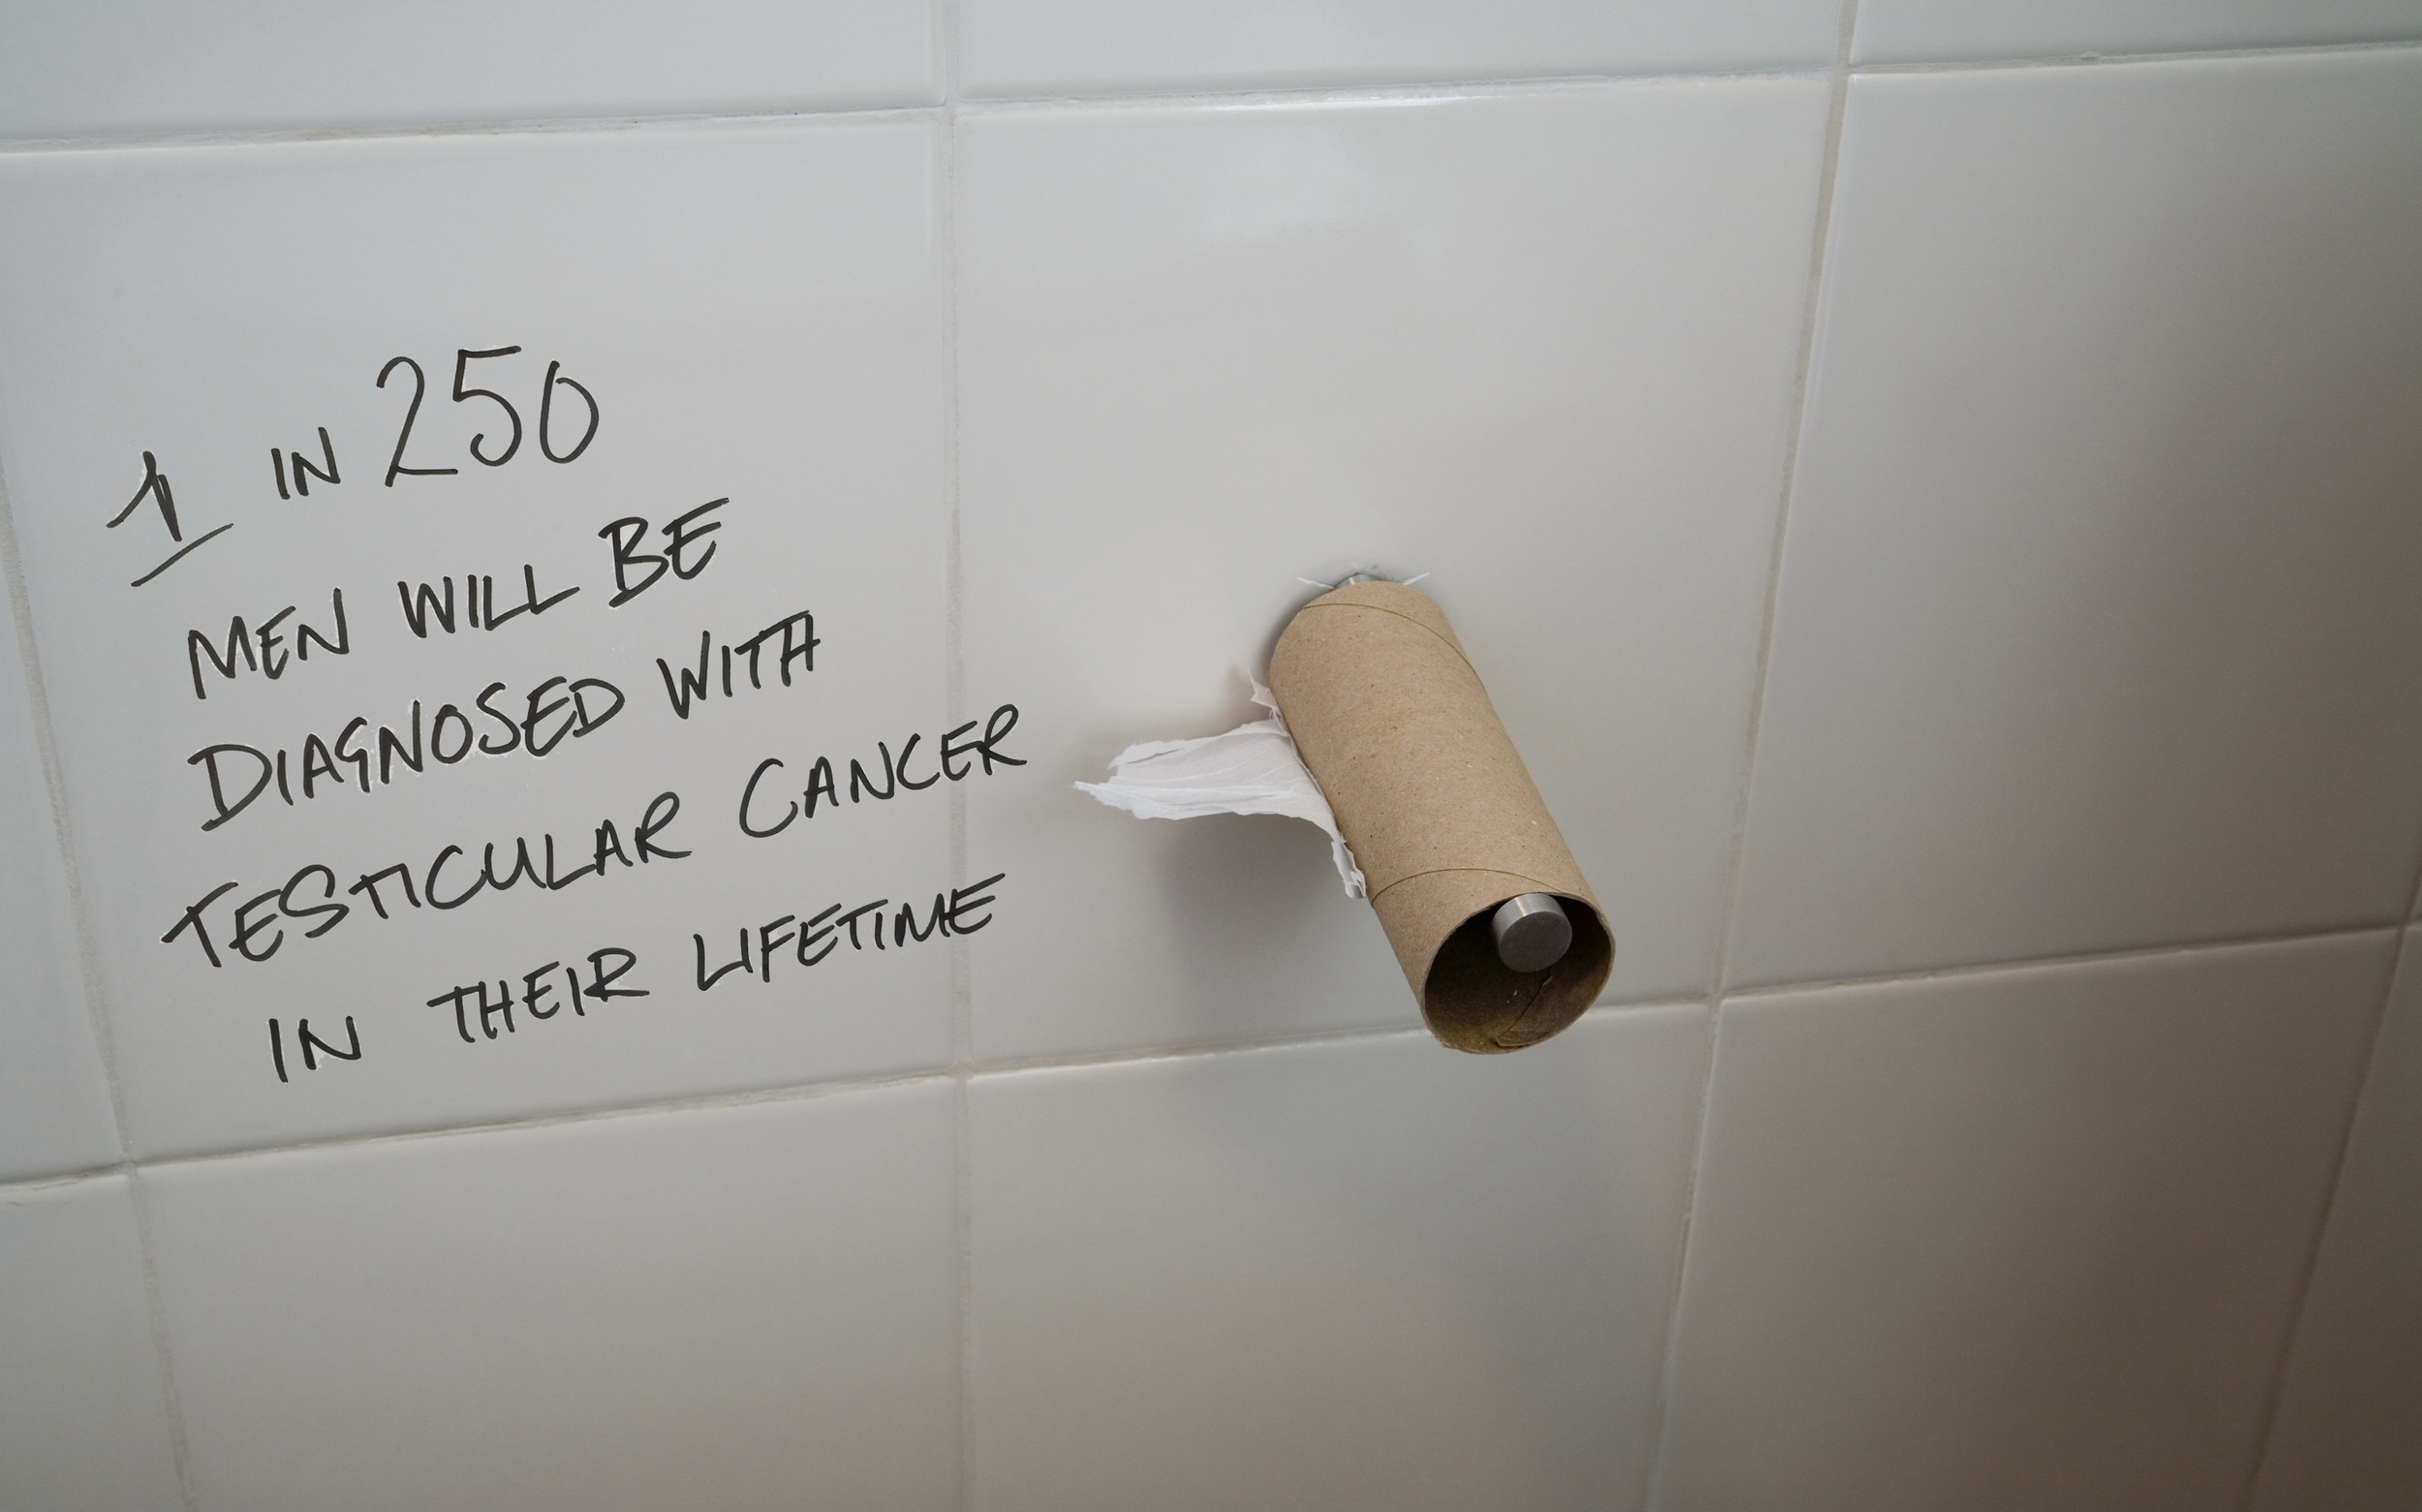 1 IN 250
MEN WILL BE
DIAGNOSED WITH
TESTICULAR CANCER
IN THEIR LIFETIME